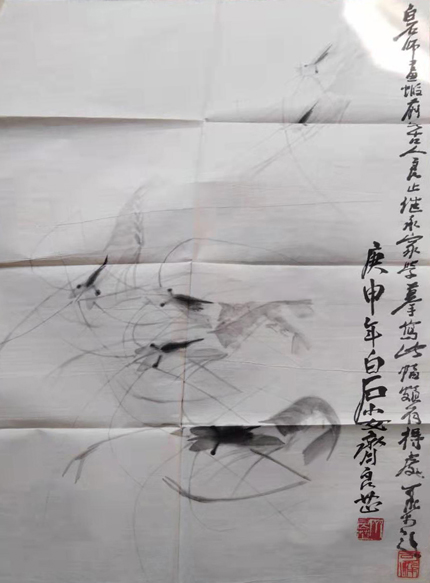 白石师画虾前无古人良止继承家学摹写此幅颇有得处
庚申年白石小女齐良芷